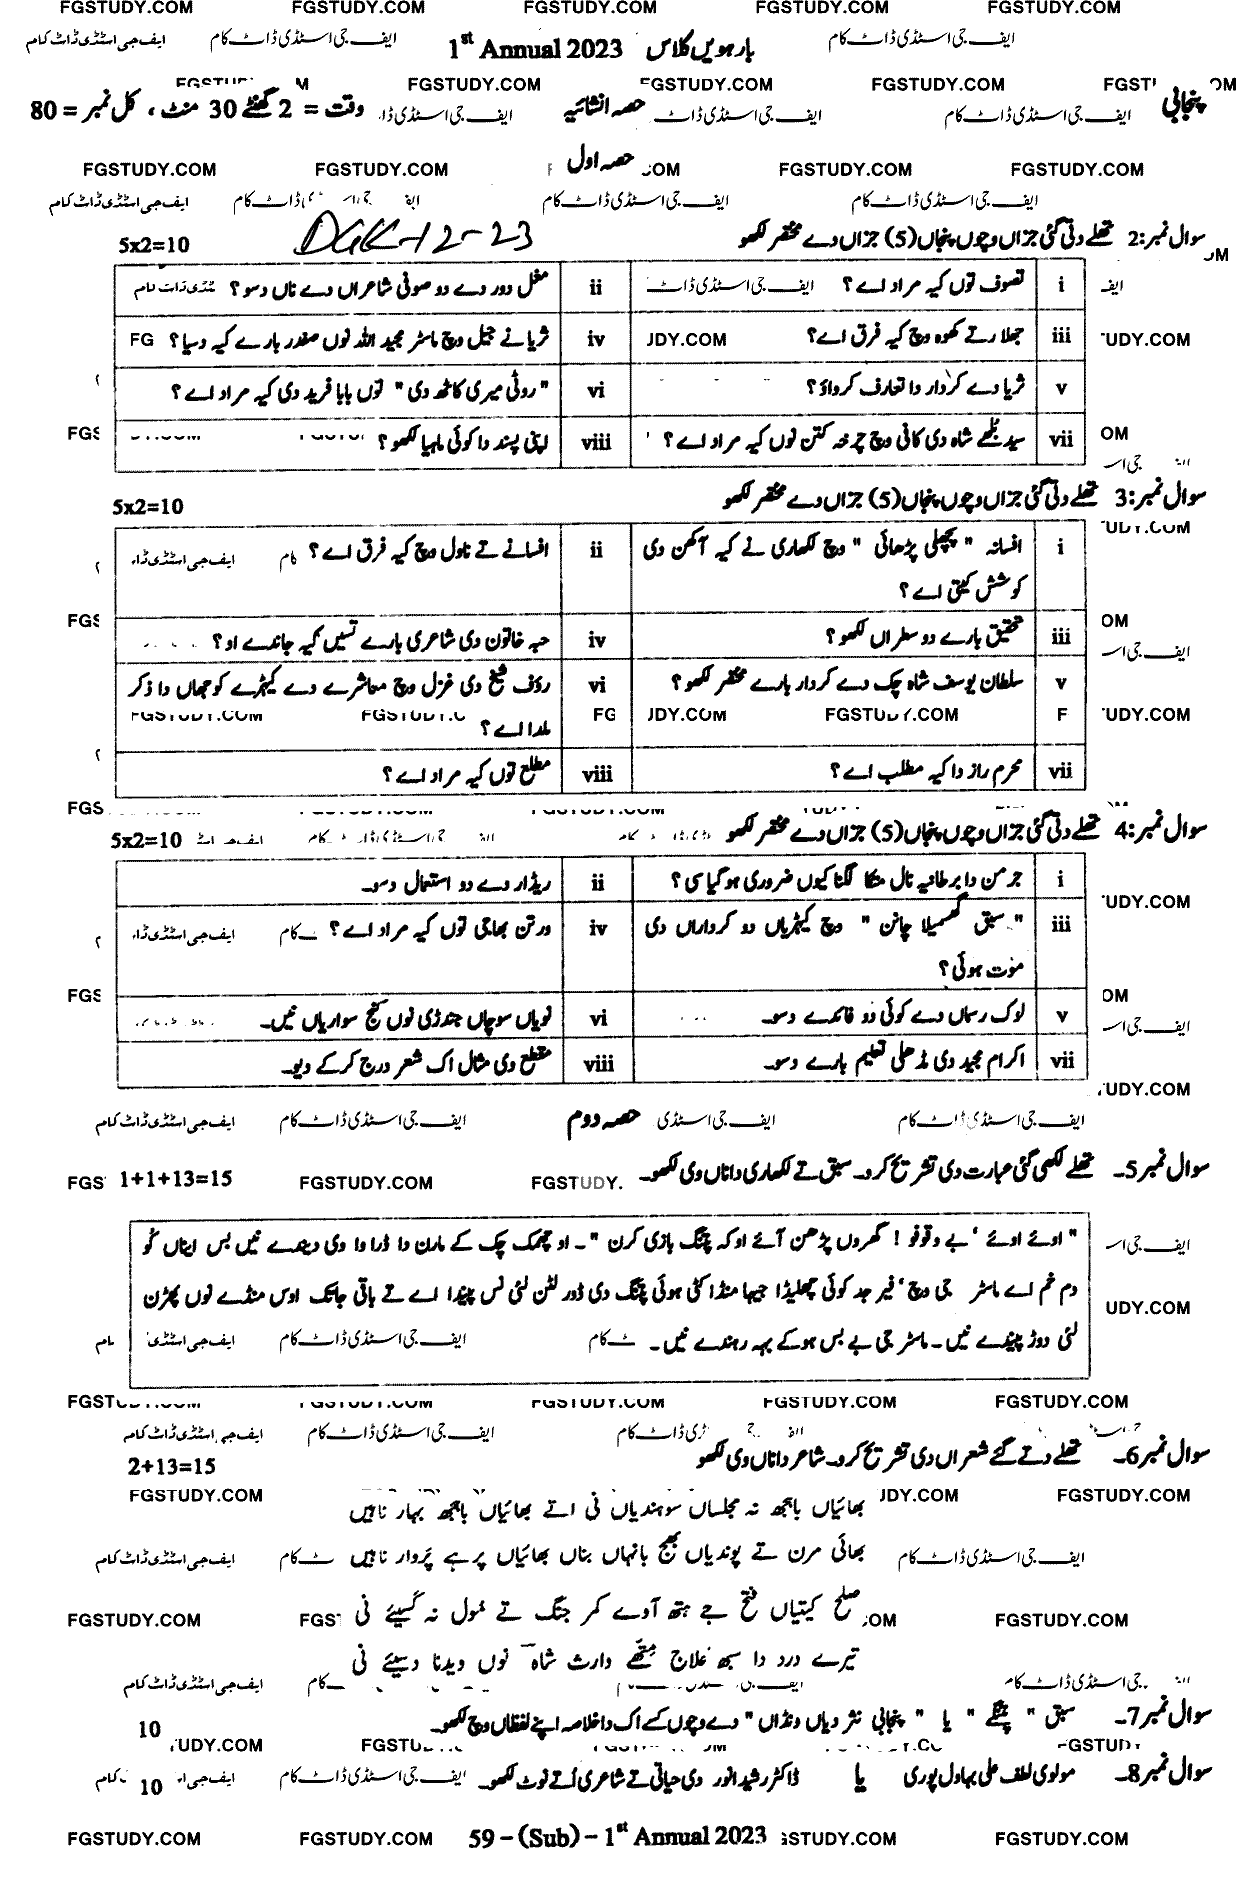 1st Annual 2023 بارھویں کلاس
پنجابی حصہ انشائیہ وقت = 2 گھنٹے 30 منٹ ، کل نمبر = 80
حصہ اول
DGK-12-23
سوال نمبر:2 تھلے دتی گئی جزاں وچوں پنجاں (5) جزاں دے مختصر لکھو 5x2=10
i تصوف توں کیہ مراد اے؟
ii مغل دور دے دو صوفی شاعراں دے ناں دسو؟
iii جھلا رتے کھوہ وچ کیہ فرق اے؟
iv ثریا نے جیل وچ ماسٹر مجید اللہ نوں صفدر بارے کیہ دسیا؟
v ثریا دے کردار دا تعارف کرواؤ؟
vi "روٹی میری کاٹھ دی" توں بابا فرید دی کیہ مراد اے؟
vii سید بلھے شاہ دی کافی وچ چرخہ کتن توں کیہ مراد اے؟
viii اپنی پسند دا کوئی ماہیا لکھو؟
سوال نمبر:3 تھلے دتی گئی جزاں وچوں پنجاں (5) جزاں دے مختصر لکھو 5x2=10
i افسانہ "پچھلی پڑھائی" وچ لکھاری نے کیہ آکھن دی
کوشش کیتی اے؟
ii افسانے تے ناول وچ کیہ فرق اے؟
iii تحقیق بارے دو سطراں لکھو؟
iv حبہ خاتون دی شاعری بارے تسیں کیہ جاندے او؟
v سلطان یوسف شاہ چک دے کردار بارے مختصر لکھو؟
vi رؤف شیخ دی غزل وچ معاشرے دے کیہڑے کوجھاں دا ذکر
ملدا اے؟
vii محرم راز دا کیہ مطلب اے؟
viii مطلع توں کیہ مراد اے؟
سوال نمبر:4 تھلے دتی گئی جزاں وچوں پنجاں (5) جزاں دے مختصر لکھو 5x2=10
i جرمن دا برطانیہ نال متکا لگنا کیوں ضروری ہوگیا سی؟
ii ریڈار دے دو استعمال دسو۔
iii "سبق گھسمیلا چانن" وچ کیہڑیاں دو کرداراں دی
موت ہوئی؟
iv ورتن بھانجی توں کیہ مراد اے؟
v لوک رساں دے کوئی دو فائدے دسو۔
vi نویاں سوچاں جندڑی نوں کنج سواریاں نیں۔
vii اکرام مجید دی مڈھلی تعلیم بارے دسو۔
viii مقطع دی مثال اک شعر درج کرکے دیو۔
حصہ دوم
سوال نمبر 5۔ تھلے لکھی گئی عبارت دی تشریح کرو۔ سبق تے لکھاری دا ناں وی لکھو۔ 1+1+13=15
"اوئے اوئے' بے وقوفو! گھروں پڑھن آئے اوکہ پتنگ بازی کرن"۔ او چھمک چک کے مارن دا ڈراوا وی دیندے نیں بس ایناں کُو
دم خم اے ماسٹر جی وچ' فیر جد کوئی چھلیڈا جیہا منڈا کٹی ہوئی پتنگ دی ڈور لٹن لئی نس پیندا اے تے باقی جاتک اوس منڈے نوں پھڑن
لئی دوڑ پیندے نیں۔ ماسٹر جی بے بس ہوکے بہہ رہندے نیں۔
سوال نمبر 6۔ تھلے دتے گئے شعراں دی تشریح کرو۔ شاعر دا ناں وی لکھو 2+13=15
بھائیاں باجھ نہ مجلساں سوہندیاں نی اتے بھائیاں باجھ بہار ناہیں
بھائی مرن تے پوندیاں بھج بانہاں بناں بھائیاں پرہے پروار ناہیں
صلح کیتیاں فتح جے ہتھ آوے کمر جنگ تے مول نہ کسیئے نی
تیرے درد دا سبھ علاج متھے وارث شاہؔ نوں ویدنا دسیئے نی
سوال نمبر 7۔ سبق "پنگے" یا "پنجابی نثر دیاں ونڈاں" دے وچوں کسے اک دا خلاصہ اپنے لفظاں وچ لکھو۔ 10
سوال نمبر 8۔ مولوی لطف علی بہاول پوری یا ڈاکٹر رشید انور دی حیاتی تے شاعری اُتے نوٹ لکھو۔ 10
59 – (Sub) – 1st Annual 2023
FGSTUDY.COM
ایف جی اسٹڈی ڈاٹ کام